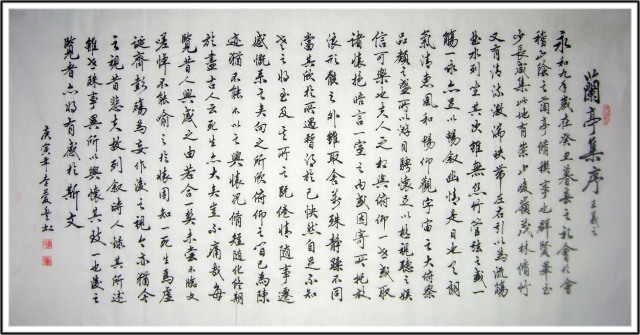 蘭亭集序 王羲之
永和九年歲在癸丑暮春之初會於會
稽山陰之蘭亭脩禊事也群賢畢至
少長咸集此地有崇山峻嶺茂林脩竹
又有清流激湍映帶左右引以為流觴
曲水列坐其次雖無絲竹管弦之盛一
觴一詠亦足以暢敘幽情是日也天朗
氣清惠風和暢仰觀宇宙之大俯察
品類之盛所以游目騁懷足以極視聽之娛
信可樂也夫人之相與俯仰一世或取
諸懷抱晤言一室之內或因寄所托放
浪形骸之外雖取舍萬殊靜躁不同
當其欣於所遇暫得於己快然自足不知
老之將至及其所之既倦情隨事遷
感慨系之矣向之所欣俯仰之間已為陳
迹猶不能不以之興懷況脩短隨化終期
於盡古人云死生亦大矣豈不痛哉每
覽昔人興感之由若合一契未嘗不臨文
嗟悼不能喻之於懷固知一死生為虛
誕齊彭殤為妄作後之視今亦猶今
之視昔悲夫故列敘時人錄其所述
雖世殊事異所以興懷其致一也後之
覽者亦將有感於斯文
庚寅年